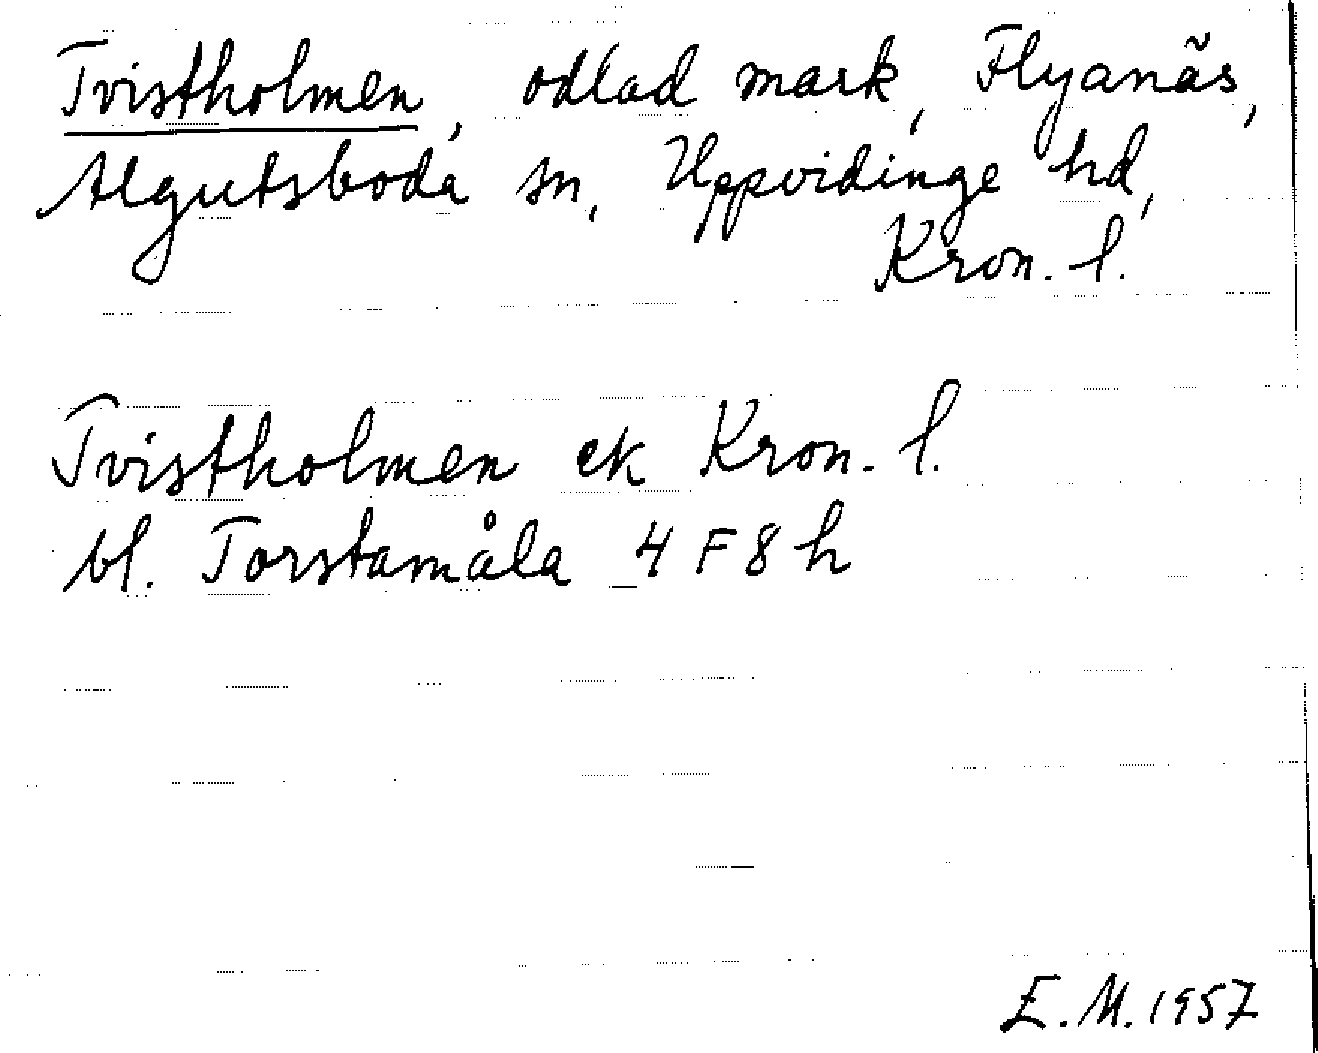 Tvistholmen, odlad mark, Flyanäs,
Algutsboda sn, Uppvidinge hd,
Kron. l.
Tvistholmen ek Kron. l.
bl. Torstamåla 4 F 8 h
E.M. 1957